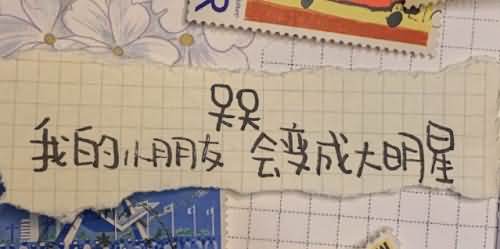 R
呆呆
我的小朋友 会变成大明星